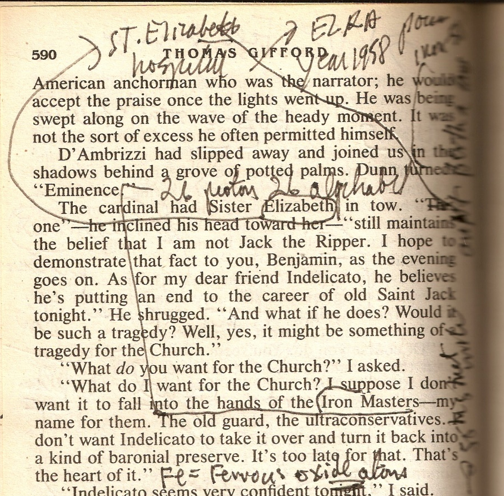 ST. Elizabeth EZRA
hospital year 1958
590 THOMAS GIFFORD
American anchorman who was the narrator; he would
accept the praise once the lights went up. He was being
swept along on the wave of the heady moment. It was
not the sort of excess he often permitted himself.
D'Ambrizzi had slipped away and joined us in the
shadows behind a grove of potted palms. Dunn turned.
“Eminence
26 proton 26 alphabet
The cardinal had Sister Elizabeth in tow. “The
one”—he inclined his head toward her—“still maintains
the belief that I am not Jack the Ripper. I hope to
demonstrate that fact to you, Benjamin, as the evening
goes on. As for my dear friend Indelicato, he believes
he's putting an end to the career of old Saint Jack
tonight.” He shrugged. “And what if he does? Would it
be such a tragedy? Well, yes, it might be something of a
tragedy for the Church.”
“What do you want for the Church?” I asked.
“What do I want for the Church? I suppose I don't
want it to fall into the hands of the Iron Masters—my
name for them. The old guard, the ultraconservatives. I
don't want Indelicato to take it over and turn it back into
a kind of baronial preserve. It's too late for that. That's
the heart of it.” Fe = Ferrous oxide atoms
“Indelicato seems very confident tonight,” I said.